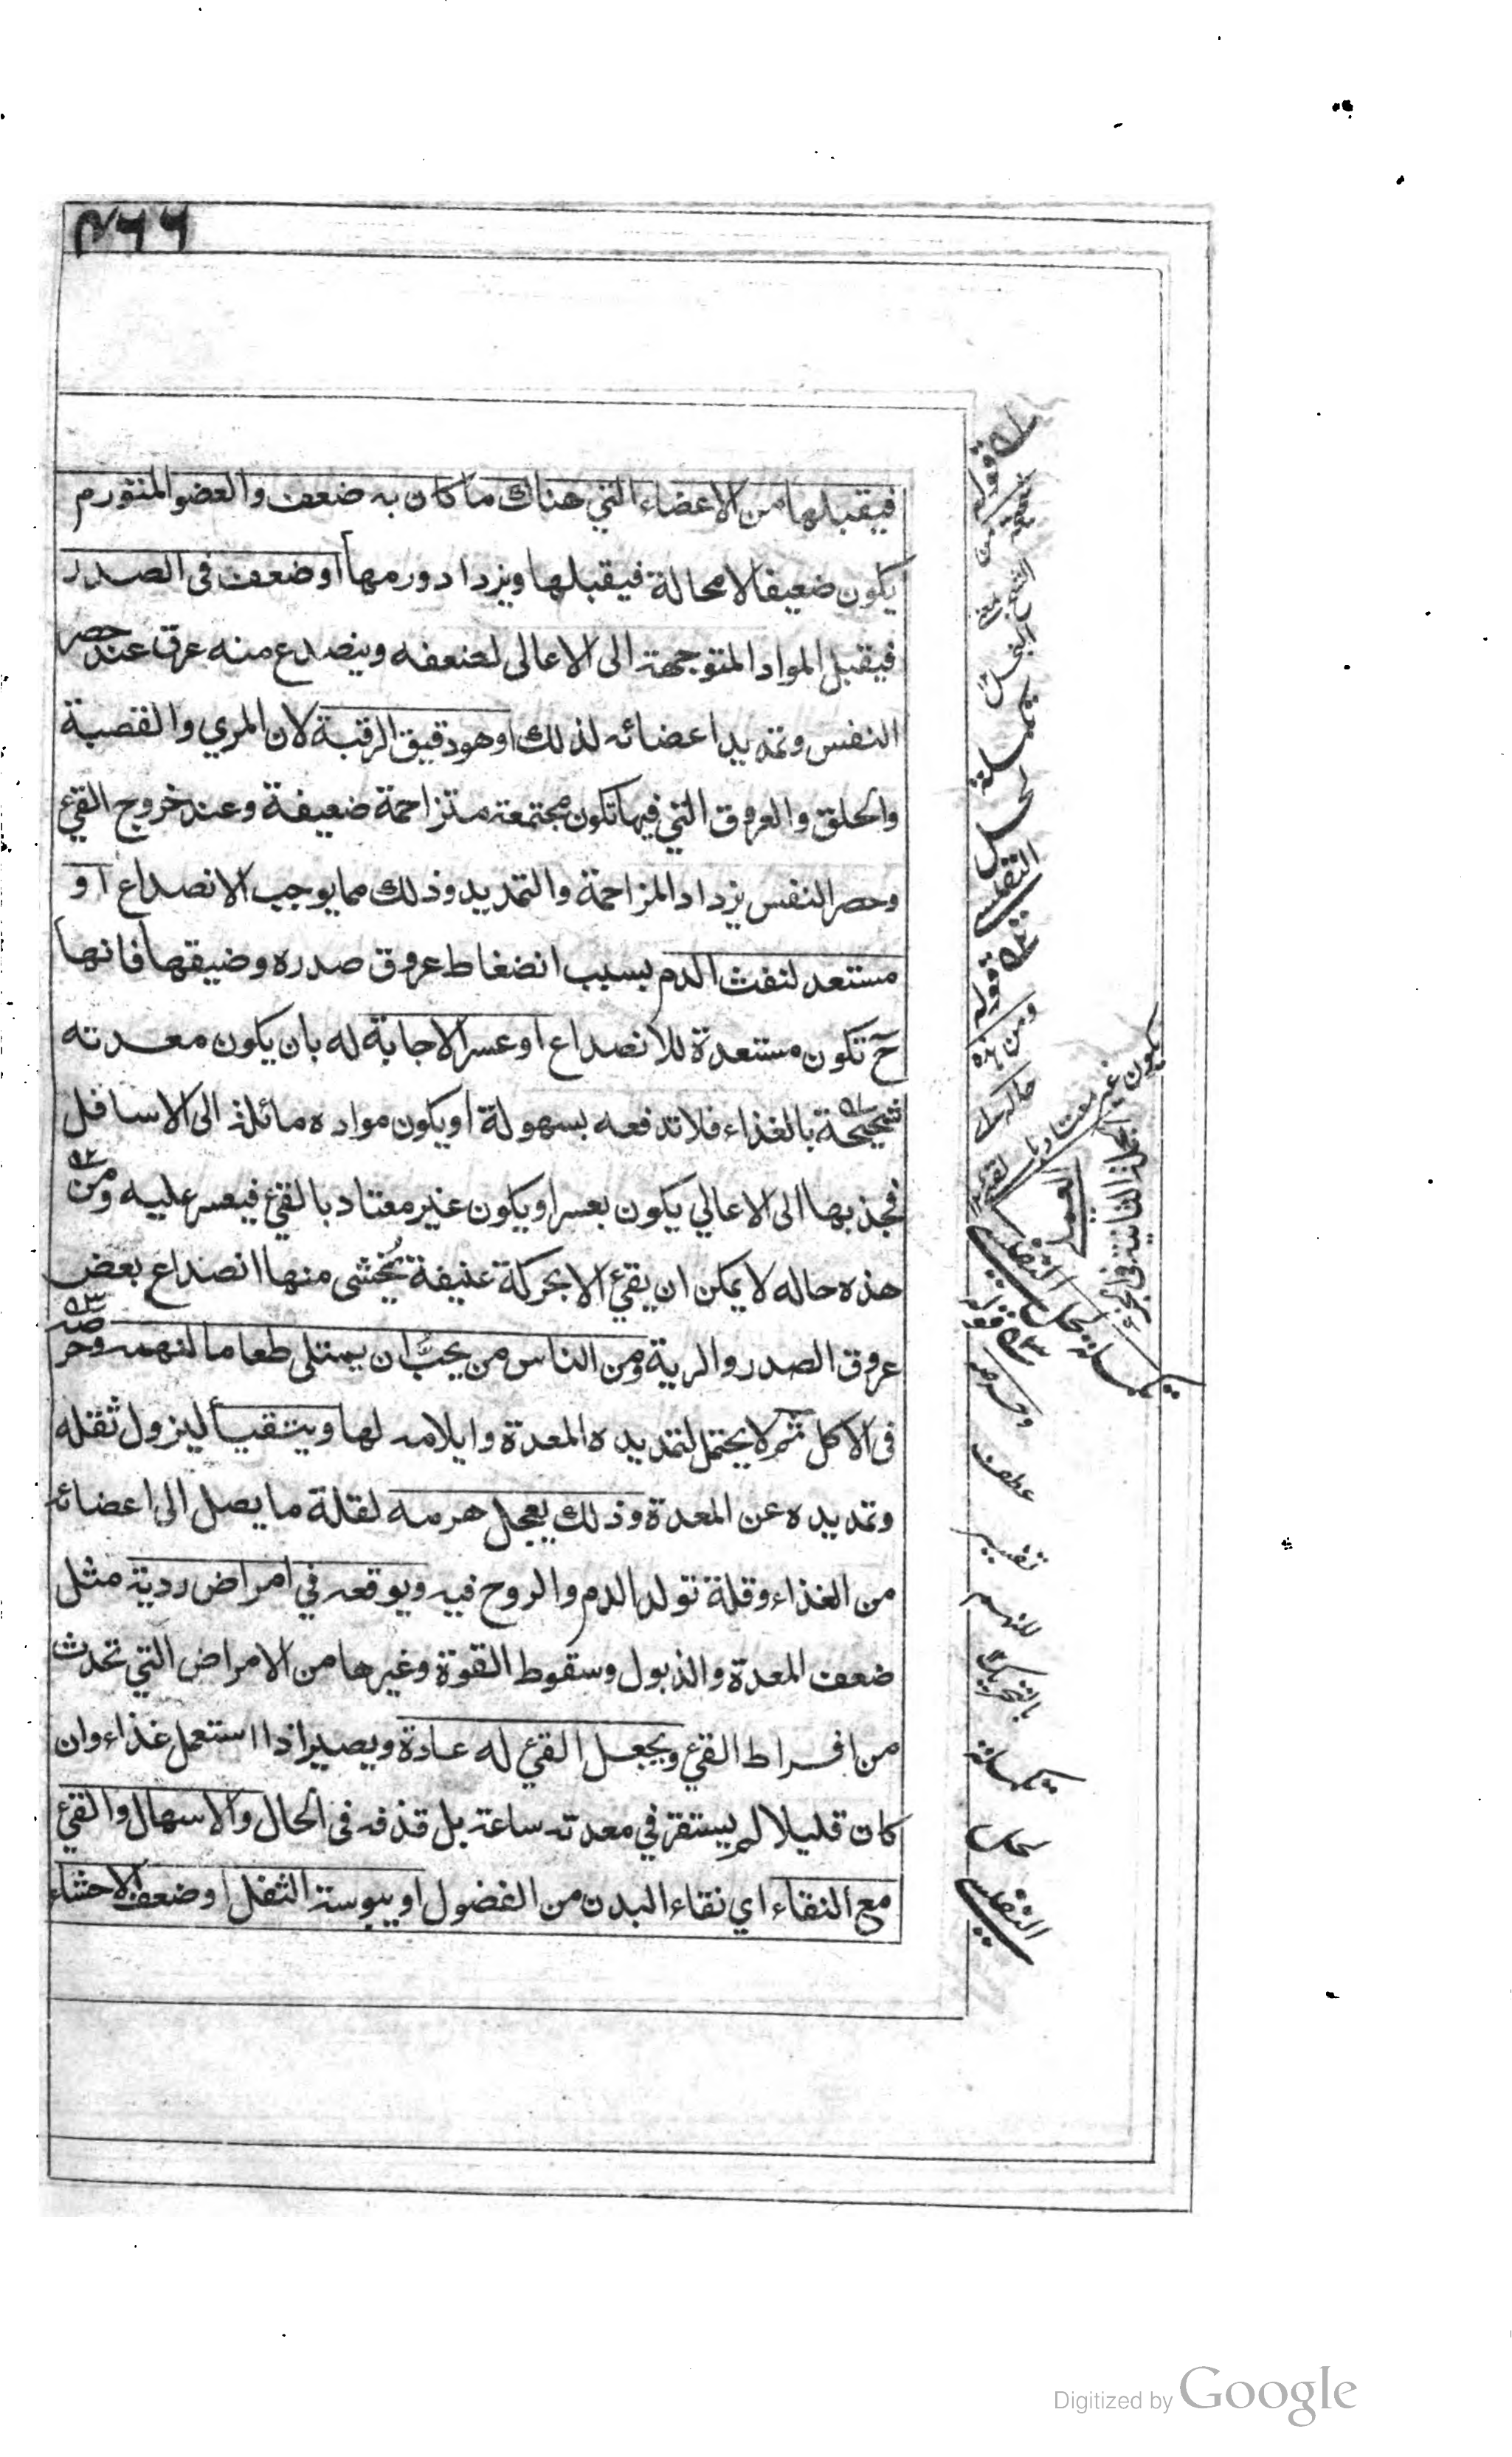 ٤٦٦
فيقبلها من الاعضاء التي هناك ما كان به ضعف والعضو المتورم
يكون ضعيفا لا محالة فيقبلها ويزداد ورمها او ضعف فى الصدر
فيقبل المواد المتوجهة الى الاعالى لضعفه وينصدع منه عرق عند حصر
النفس وتمديد اعضائه لذلك او هو دقيق الرقبة لان المري والقصبة
والحلق والعروق التي فيها تكون مجتمعة متزاحمة ضعيفة وعند خروج القئ
وحصر النفس يزداد المزاحمة والتمديد وذلك مما يوجب الانصداع او
مستعد لنفث الدم بسبب انضغاط عروق صدره وضيقها فانها
ح تكون مستعدة للانصداع او عسر الاجابة له بان يكون معدته
شحيحة بالغذاء فلا تدفعه بسهولة او يكون مواده مائلة الى الاسافل
فجذبها الى الاعالي يكون بعسر او يكون غير معتاد بالقئ فيعسر عليه ومن
هذه حاله لا يمكن ان يقئ الا بحركة عنيفة يخشى منها انصداع بعض
عروق الصدر والرية ومن الناس من يحب ان يمتلى طعاما لنهمه وحرصه
فى الاكل ثم لا يحتمل لتمديده المعدة وايلامه لها ويتقيأ ليزول ثقله
وتمديده عن المعدة وذلك يعجل هرمه لقلة ما يصل الى اعضائه
من الغذاء وقلة تولد الدم والروح فيه ويوقعه في امراض ردية مثل
ضعف المعدة والذبول وسقوط القوة وغيرها من الامراض التي تحدث
من افراط القئ ويجعل القئ له عادة ويصير اذا استعمل غذاء وان
كان قليلا لم يستقر في معدته ساعة بل قذفه فى الحال والاسهال والقئ
مع النقاء اي نقاء البدن من الفضول او يبوسة الثفل او ضعف الاحشاء
قوله
شحيحة من الشح
قوله
ومن هذه
حاله
يكون غير معتاد با
لقئ
قوله
وحرصه
عطف
تفسير
للنهم
بالتحريك
Digitized by Google